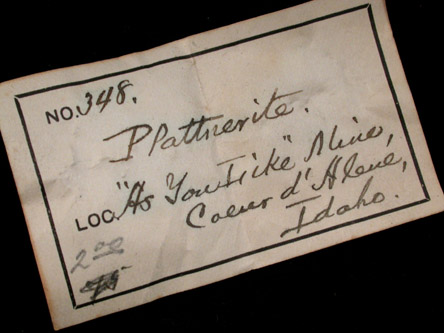 NO. 348.
Plattnerite.
LOC. "As You Like" Mine,
Coeur d'Alene,
Idaho.
2 00